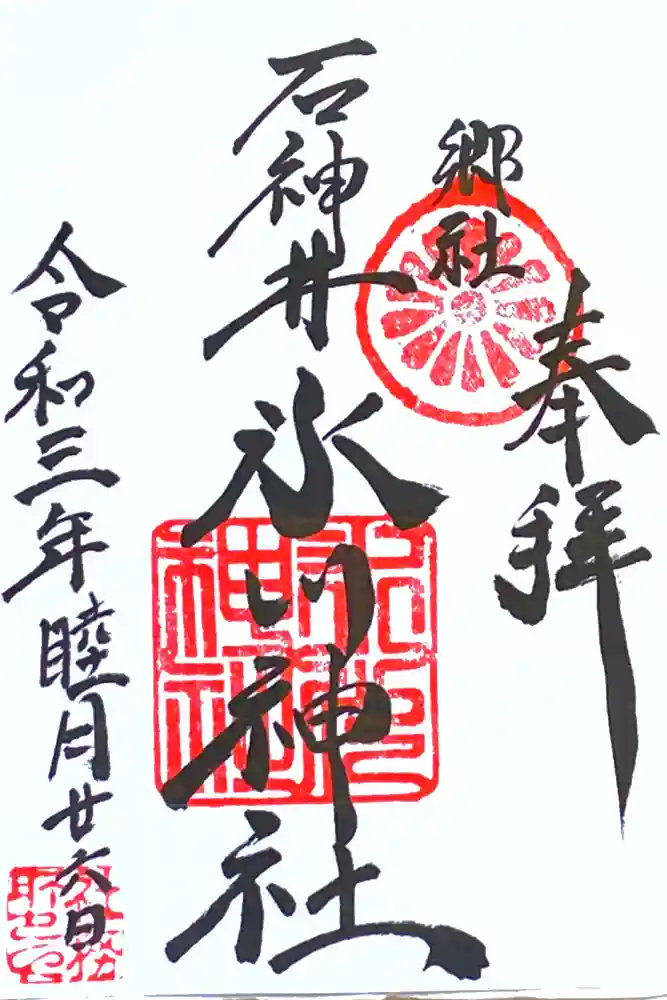 奉拝
郷社
石神井氷川神社
令和三年睦月廿六日